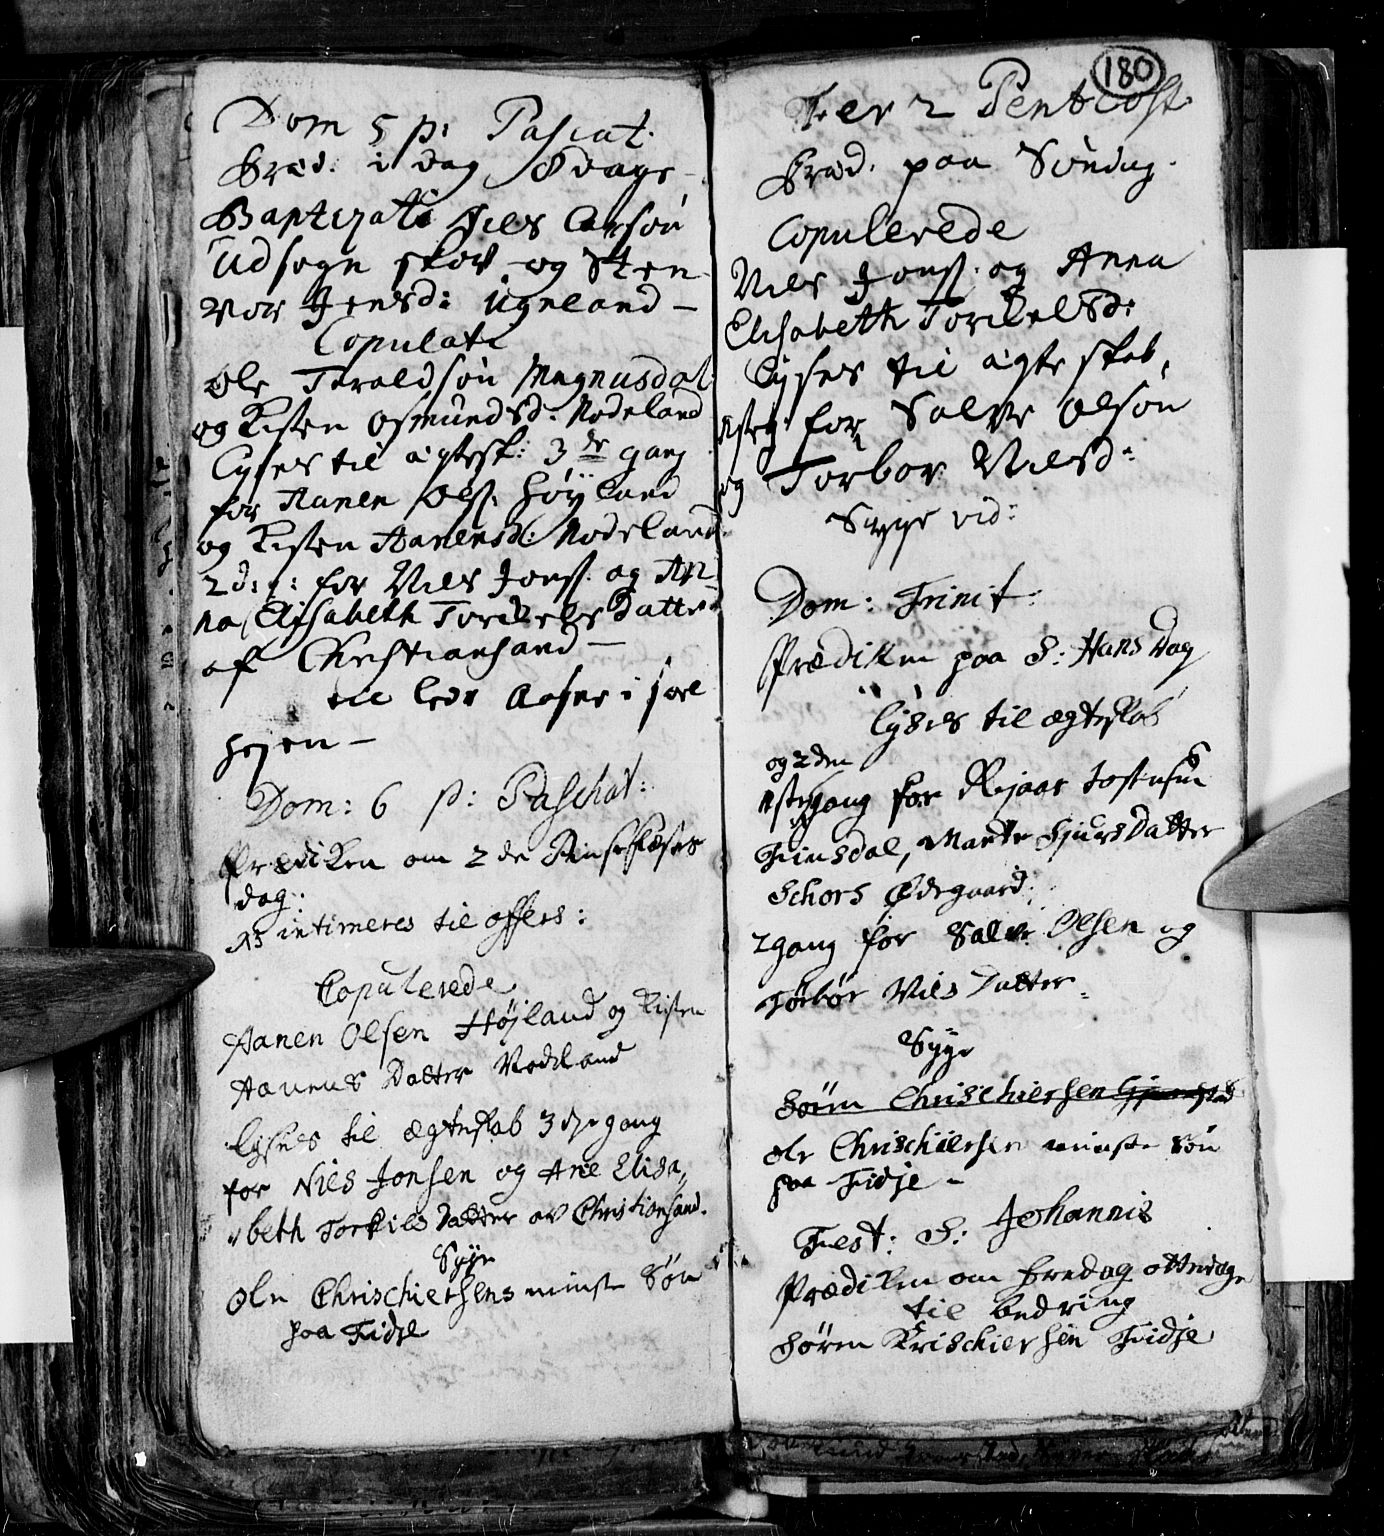 Dom 5 p: Pascat.
Præd: i dag 8 dage
Baptizati Niels Larsøn
Udsogn skov og Sten
vor Jensd: Ugneland –
Copulati
Ole Teraldsøn Magnusdal
og Kisten Osmundsd: Nodeland
Lyses til ægtesk: 3de gang
for Aanen Ols: Høyland
og Kisten Aanensd: Nodeland
2d: g: for Niels Jonss. og An
na Elisabeth Torkels datter
af Christiansand –
til leds Aasne i
hejen –
Dom: 6 p: Paschat:
Prædiken om 2de Pinsefæstes
dag:
NB intimeres til offers:
Copulerede
Aanen Olsen Højland og Kisten
Aanens Datter Nodeland
lyses til ægteskab 3die gang
for Niels Jonsen og Ane Elisa,,
beth Torkils Datter av Christiansand.
Syge
Ole Chrischiersens minste Søn
paa Fidje
180
Fer 2 Pentecost.
Præd. paa Søndag.
Copulerede
Niels Jonss. og Anna
Elisabeth Torkelsd:
lyses til ægteskab,
1ste g: for Salve Olsøn
og Torbor Nielsd:
Syge vid:
Dom: Trinit:
Prædiken paa S: Hans Dag
lyses til ægteskab
og 2den
1ste gang for Rejaar Tostensen
Finsdal, Marte Sjurs Datter
Schors Ødegaard.
2 gang for Salve Olsen og
Torbor Niels Datter
Syge
Søren Chrischiersen
Ole Chrischiersen minste Søn
paa Fidje –
Fest: S: Johannis
Prædiken om Fredag ottedage
til bedring
Søren Krischiersen Fidje